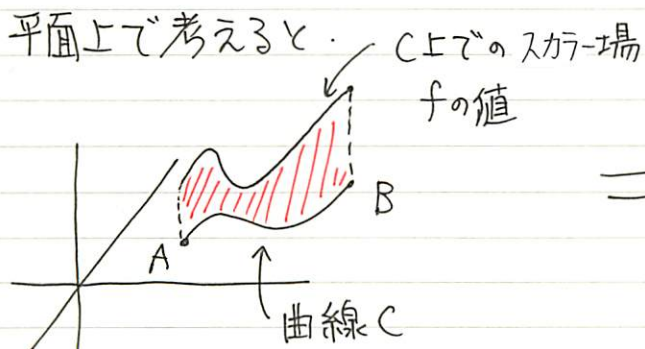 平面上で考えると.
C上でのスカラー場
fの値
=
A
B
曲線C